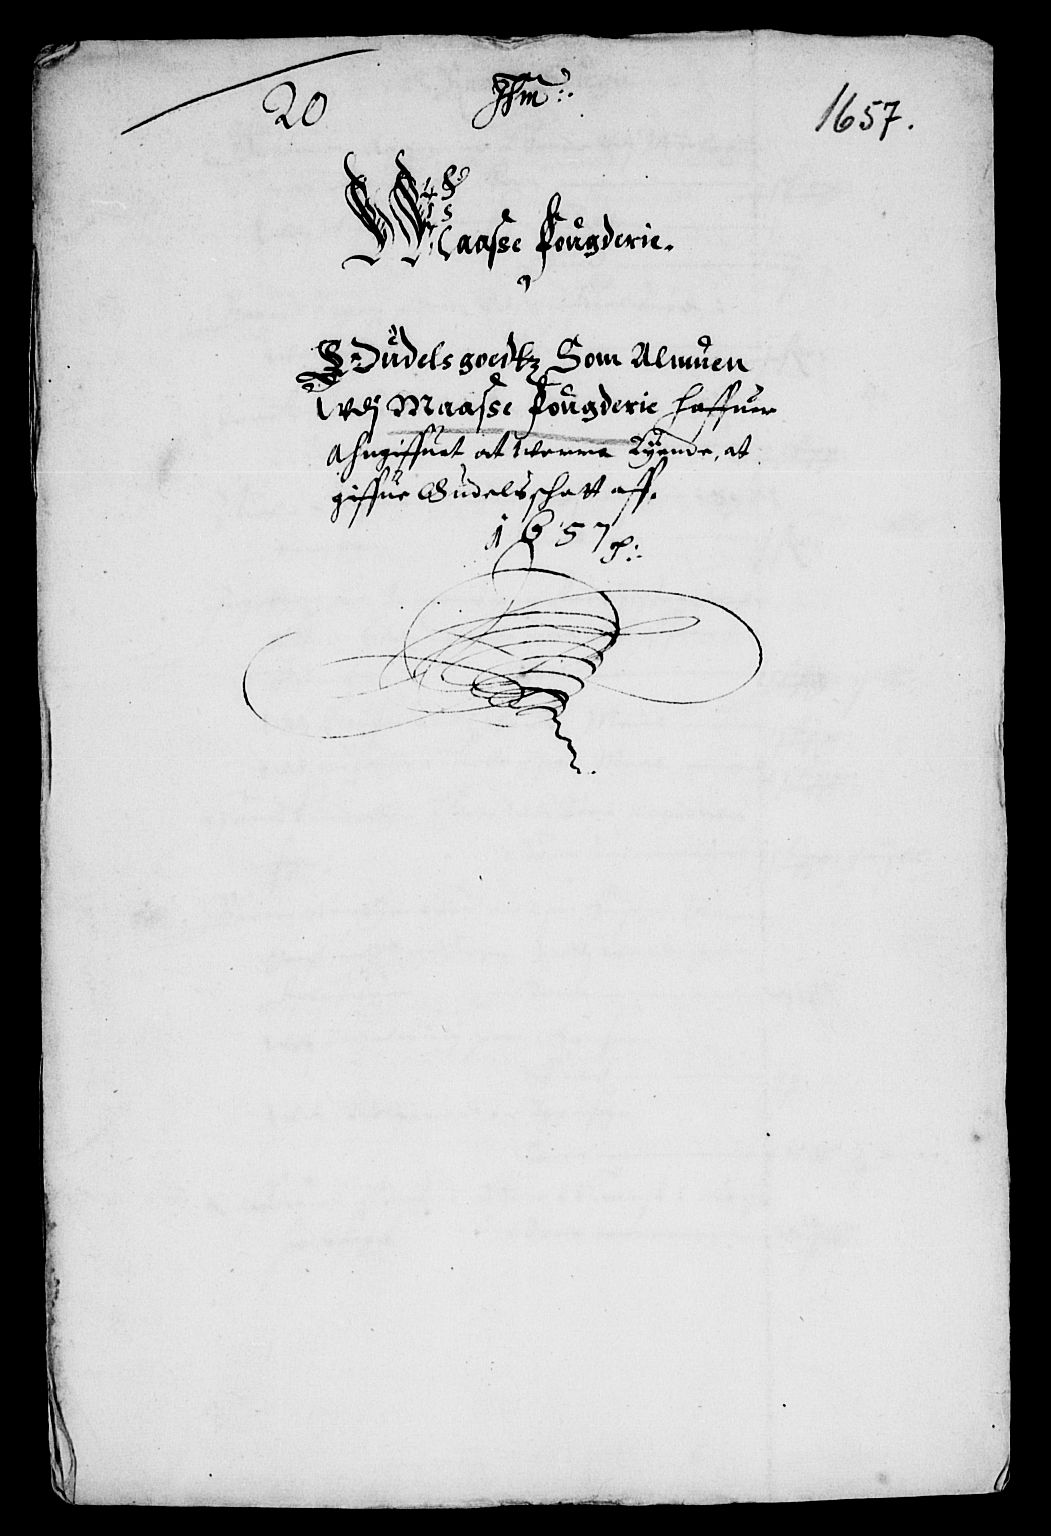 20
Jhm:
1657.
Maasse Fougderie.
Odudels goedtz Som Almuen
Udj Maasse Fougderie haffuer
Ahngiffuet at werre Eyende, at
giffue Odudelsschatt aff.
1657